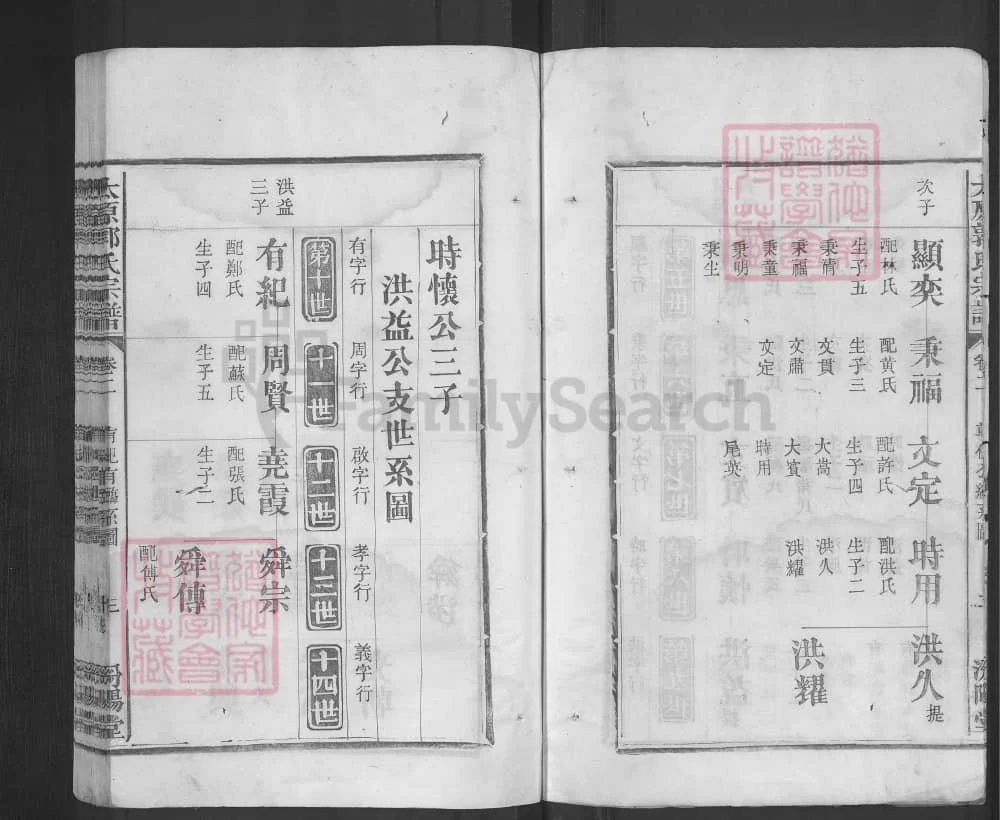 次子
顯奕
配林氏
生子五
秉霄
秉福
秉童
秉明
秉生
秉福
配黄氏
生子三
文貫
文肅
文定
文定
配許氏
生子四
大嵩
大賓
時用
尾英
時用
配洪氏
生子二
洪久
洪耀
洪久提
洪耀
時懷公三子
洪益公支世系圖
有字行 周字行 啟字行 孝字行 義字行
第十世 十一世 十二世 十三世 十四世
洪益
三子
有紀
配鄭氏
生子四
周賢
配蘇氏
生子五
堯霞
配張氏
生子二
舜宗
舜傳
配傅氏
太原郭氏宗譜 卷二
FamilySearch